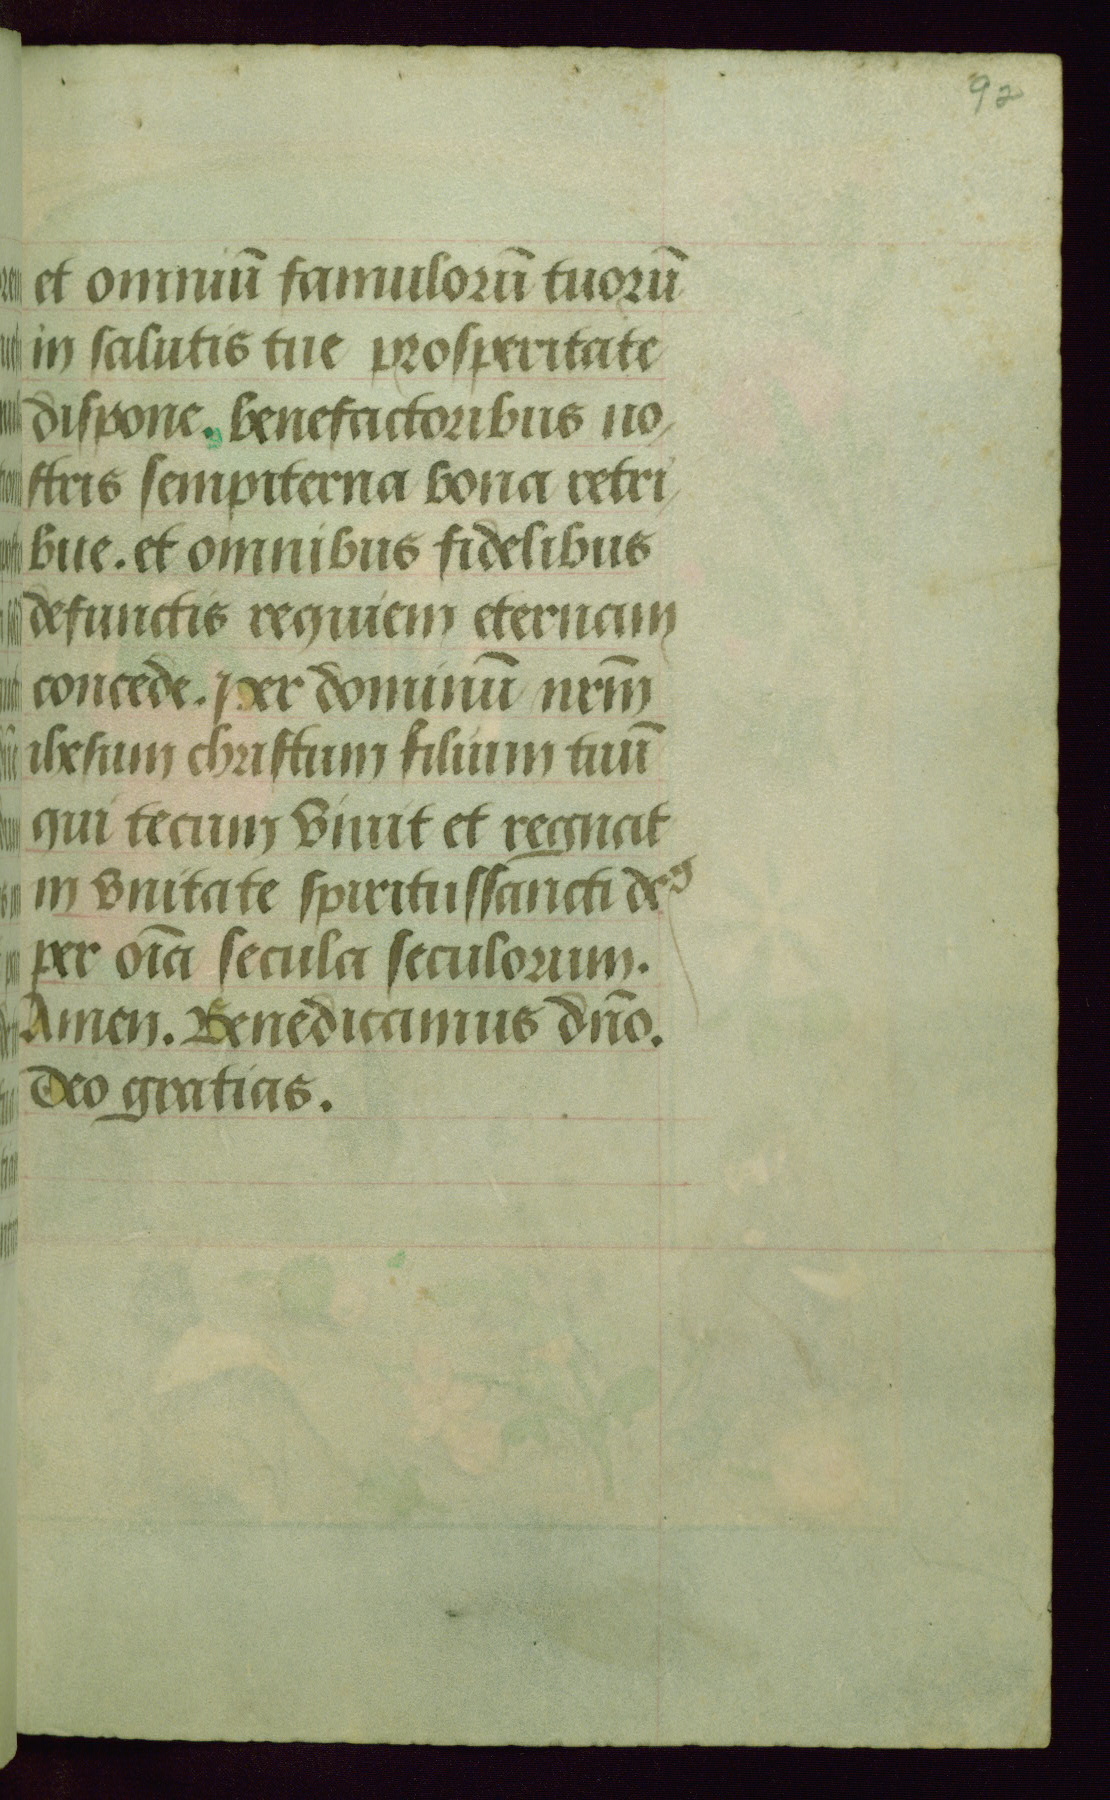 92
et omniū famulorū tuorū
in salutis tue prosperitate
dispone. benefactoribus no
stris sempiterna bona retri
bue. et omnibus fidelibus
defunctis requiem eternam
concede. Per dominū nr̄m
ihesum christum filium tuū
qui tecum viuit et regnat
in vnitate spiritussancti deꝰ
per oīa secula seculorum.
Amen. Benedicamus dn̄o.
Deo gratias.